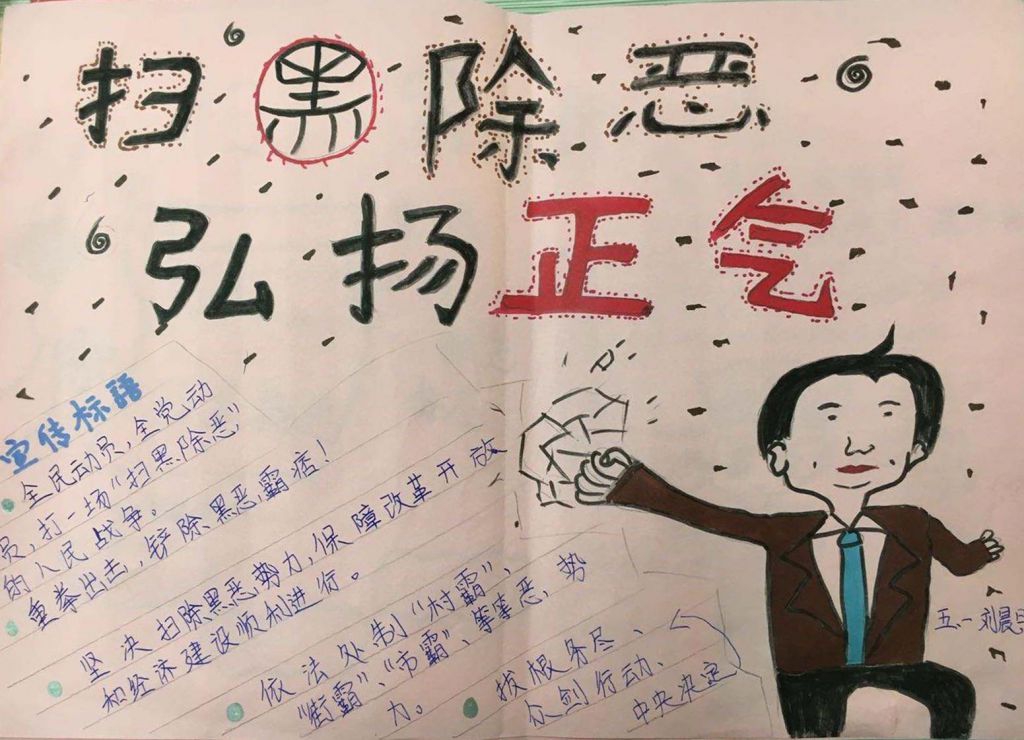 扫黑除恶
弘扬正气
宣传标语
全民动员,全党动
员,打一场"扫黑除恶"
的人民战争。
重拳出击,铲除黑恶霸痞!
坚决扫除黑恶势力,保障改革开放
和经济建设顺利进行。
依法处制"村霸"、
"街霸"、"市霸"、等等恶势
力。
拔根务尽、
众剑行动、
中央决定
五.一 刘晨